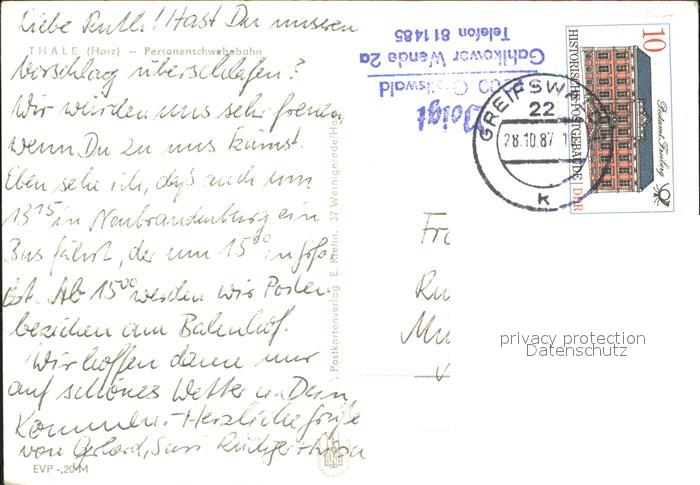 Liebe Ruth! Hast Du unseren
THALE (Harz) – Personenschwebebahn
Vorschlag überschlafen?
Wir würden uns sehr freuen,
wenn Du zu uns kämst.
Eben sehe ich, daß auch um
13¹⁵ in Neubrandenburg ein
Bus fährt, der um 15⁰⁰ in
ist. Ab 15⁰⁰ werden wir Posten
beziehen am Bahnhof.
Wir hoffen dann nur
auf schönes Wetter u. Dein
Kommen. - Herzliche Grüße
von Gerhard, Susi, Rüdiger +
EVP -,20 M
Postkartenverlag E. Riehn, 37 Wernigerode/Harz
Voigt
Greifswald
Gahlkower Wende 2a
Telefon 811485
GREIFSWALD
22
28.10.87
k
10
HISTORISCHE POSTGEBÄUDE DDR
Postamt Freiberg
Fr
Ru
privacy protection
Datenschutz